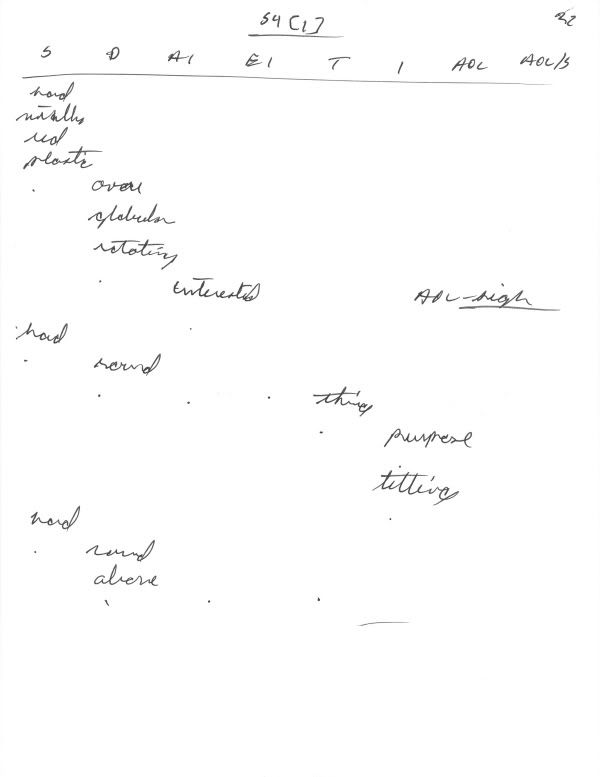 S4 [1]
22
S D AI EI T I AOL AOL/S
hard
metallic
red
plastic
over
globular
rotating
interested
AOL-sigh
hard
round
thing
purpose
titting
hard
round
above